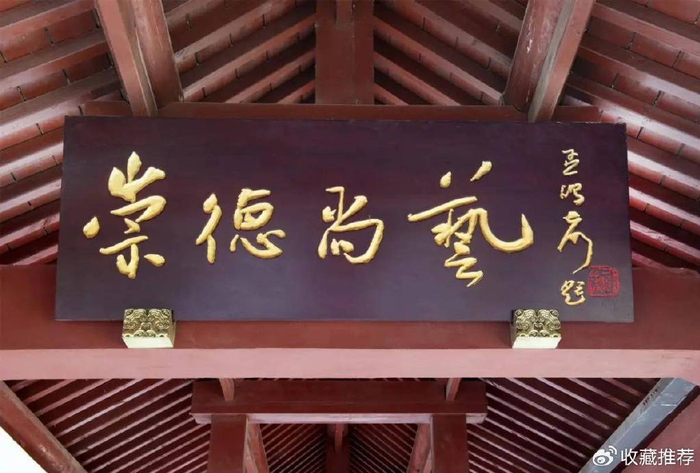 崇德尚藝
收藏推荐